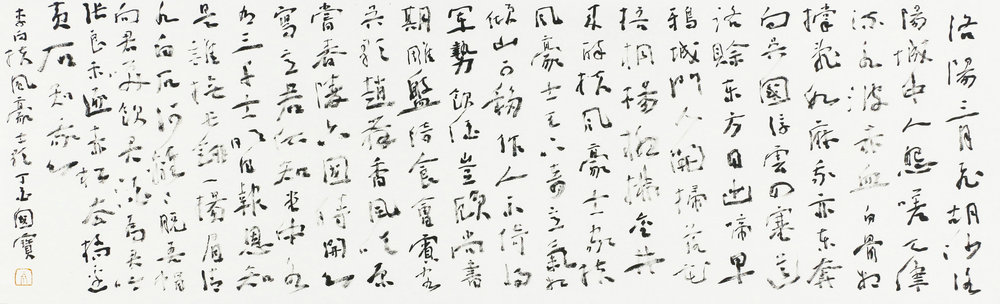 洛陽三月飛胡沙洛
陽城中人怨嗟天津
流水波赤血白骨相
撐亂如麻我亦東奔
向吳國浮雲四塞道
路賒東方日出啼早
鴉城門人開掃落花
梧桐楊柳拂金井
來醉扶風豪士家扶
風豪士天下奇意氣相
傾山可移作人不倚將
軍勢飲酒豈顧尚書
期雕盤綺食會賓客
吳歌趙舞香風吹原
嘗春陵六國時開心
寫意君所知堂中各
有三千士明日報恩知
是誰撫長劍一揚眉清
水白石何離離脫吾帽
向君笑飲君酒為君吟
張良未逐赤松去橋邊
黃石知我心
李白扶風豪士歌丁亥國寶